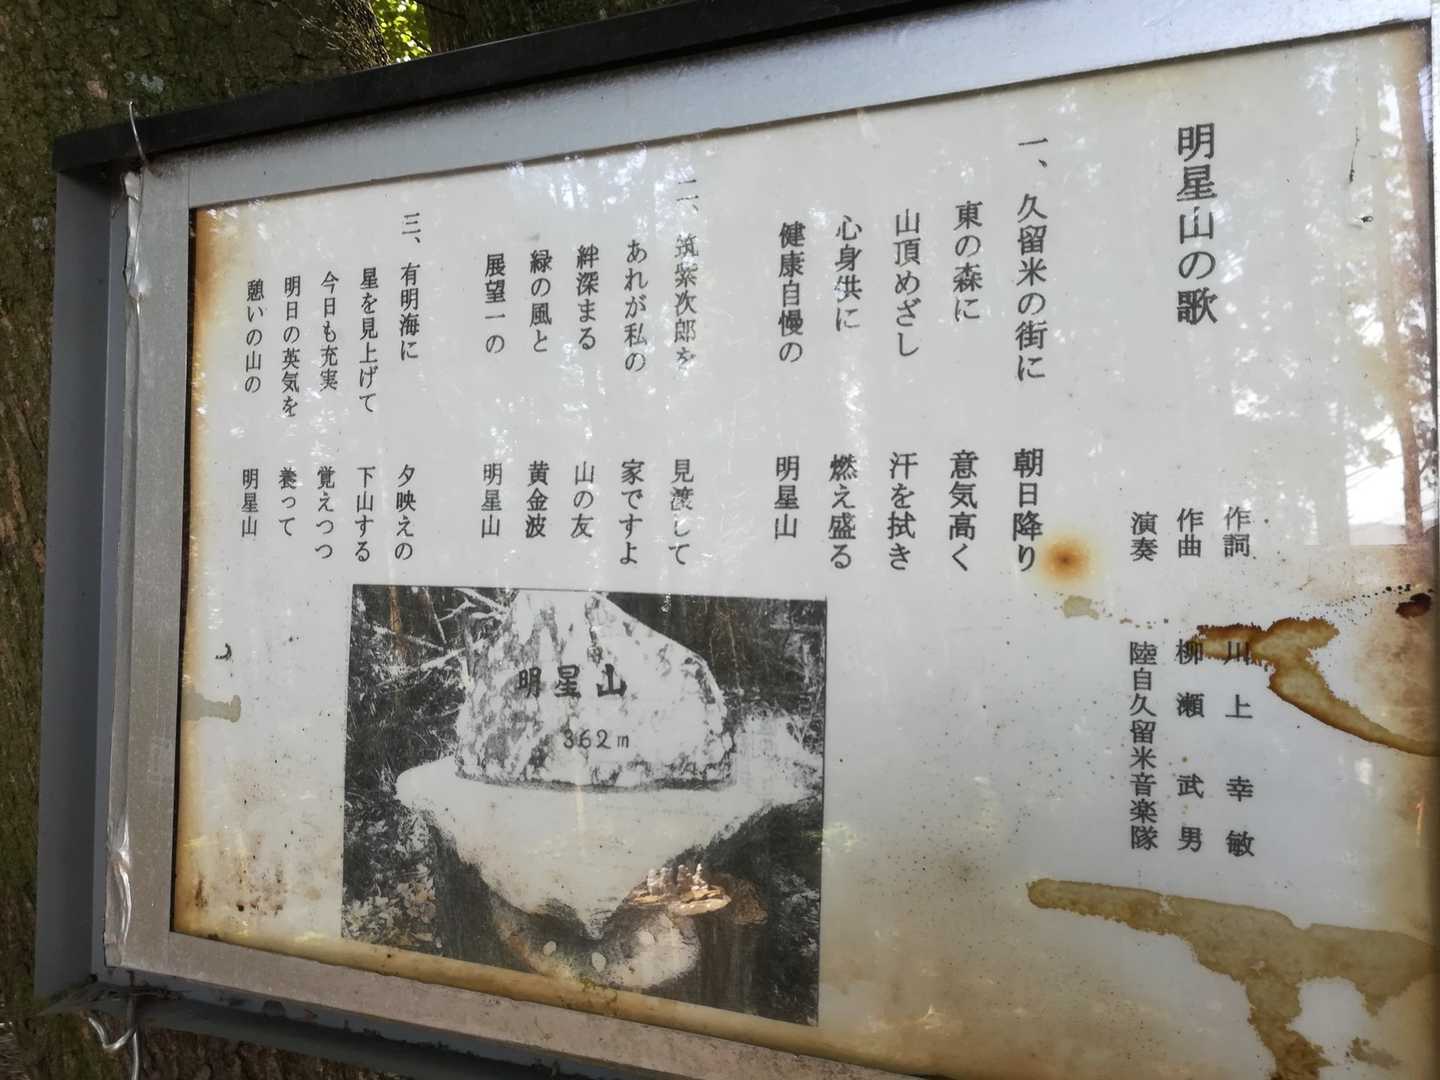 明星山の歌
作詞 川上幸敏
作曲 柳瀬武男
演奏 陸自久留米音楽隊
一、久留米の街に 朝日降り
東の森に 意気高く
山頂めざし 汗を拭き
心身供に 燃え盛る
健康自慢の 明星山
二、筑紫次郎を 見渡して
あれが私の 家ですよ
絆深まる 山の友
緑の風と 黄金波
展望一の 明星山
三、有明海に 夕映えの
星を見上げて 下山する
今日も充実 覚えつつ
明日の英気を 養って
憩いの山の 明星山
明星山
362m